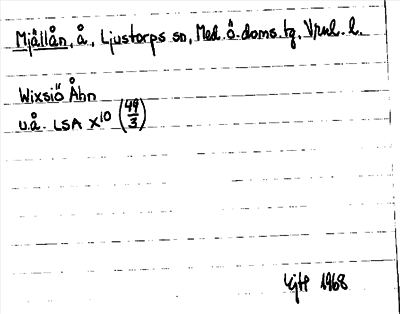 Mjällån, å, Ljustorps sn, Med. ö. doms. tg, Vrnl. l.
Wixsiö Åhn
u.å. LSA X¹⁰ (49/3)
1968